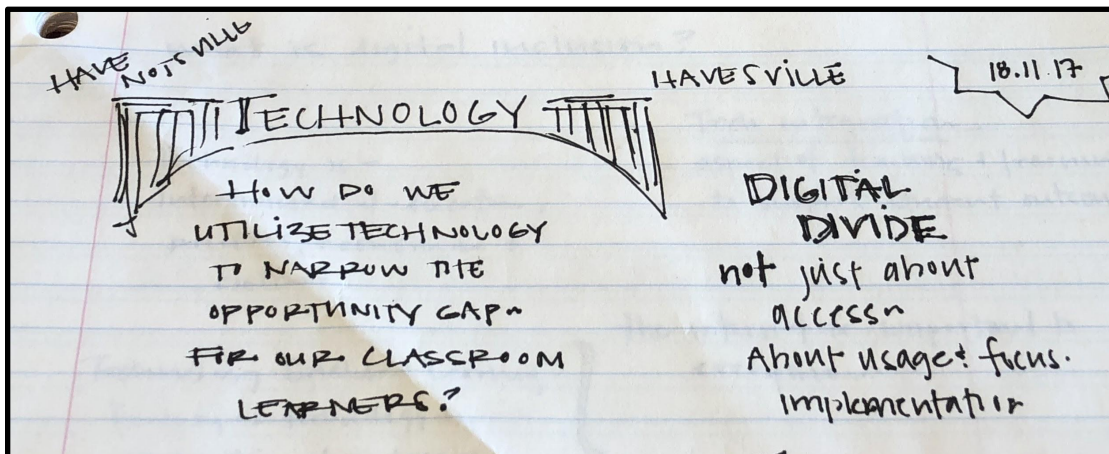 HAVE NOTSVILLE
HAVESVILLE
18.11.17
TECHNOLOGY
HOW DO WE
UTILIZE TECHNOLOGY
TO NARROW THE
OPPORTUNITY GAP
FOR OUR CLASSROOM
LEARNERS?
DIGITAL
DIVIDE
not just about
access
About usage & focus.
implementation